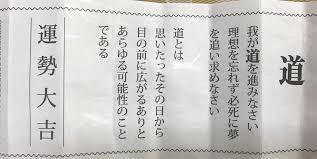 道
我が道を進みなさい
理想を忘れず必死に夢
を追い求めなさい
道とは
思いたったその日から
目の前に広がるありと
あらゆる可能性のこと
である
運勢大吉